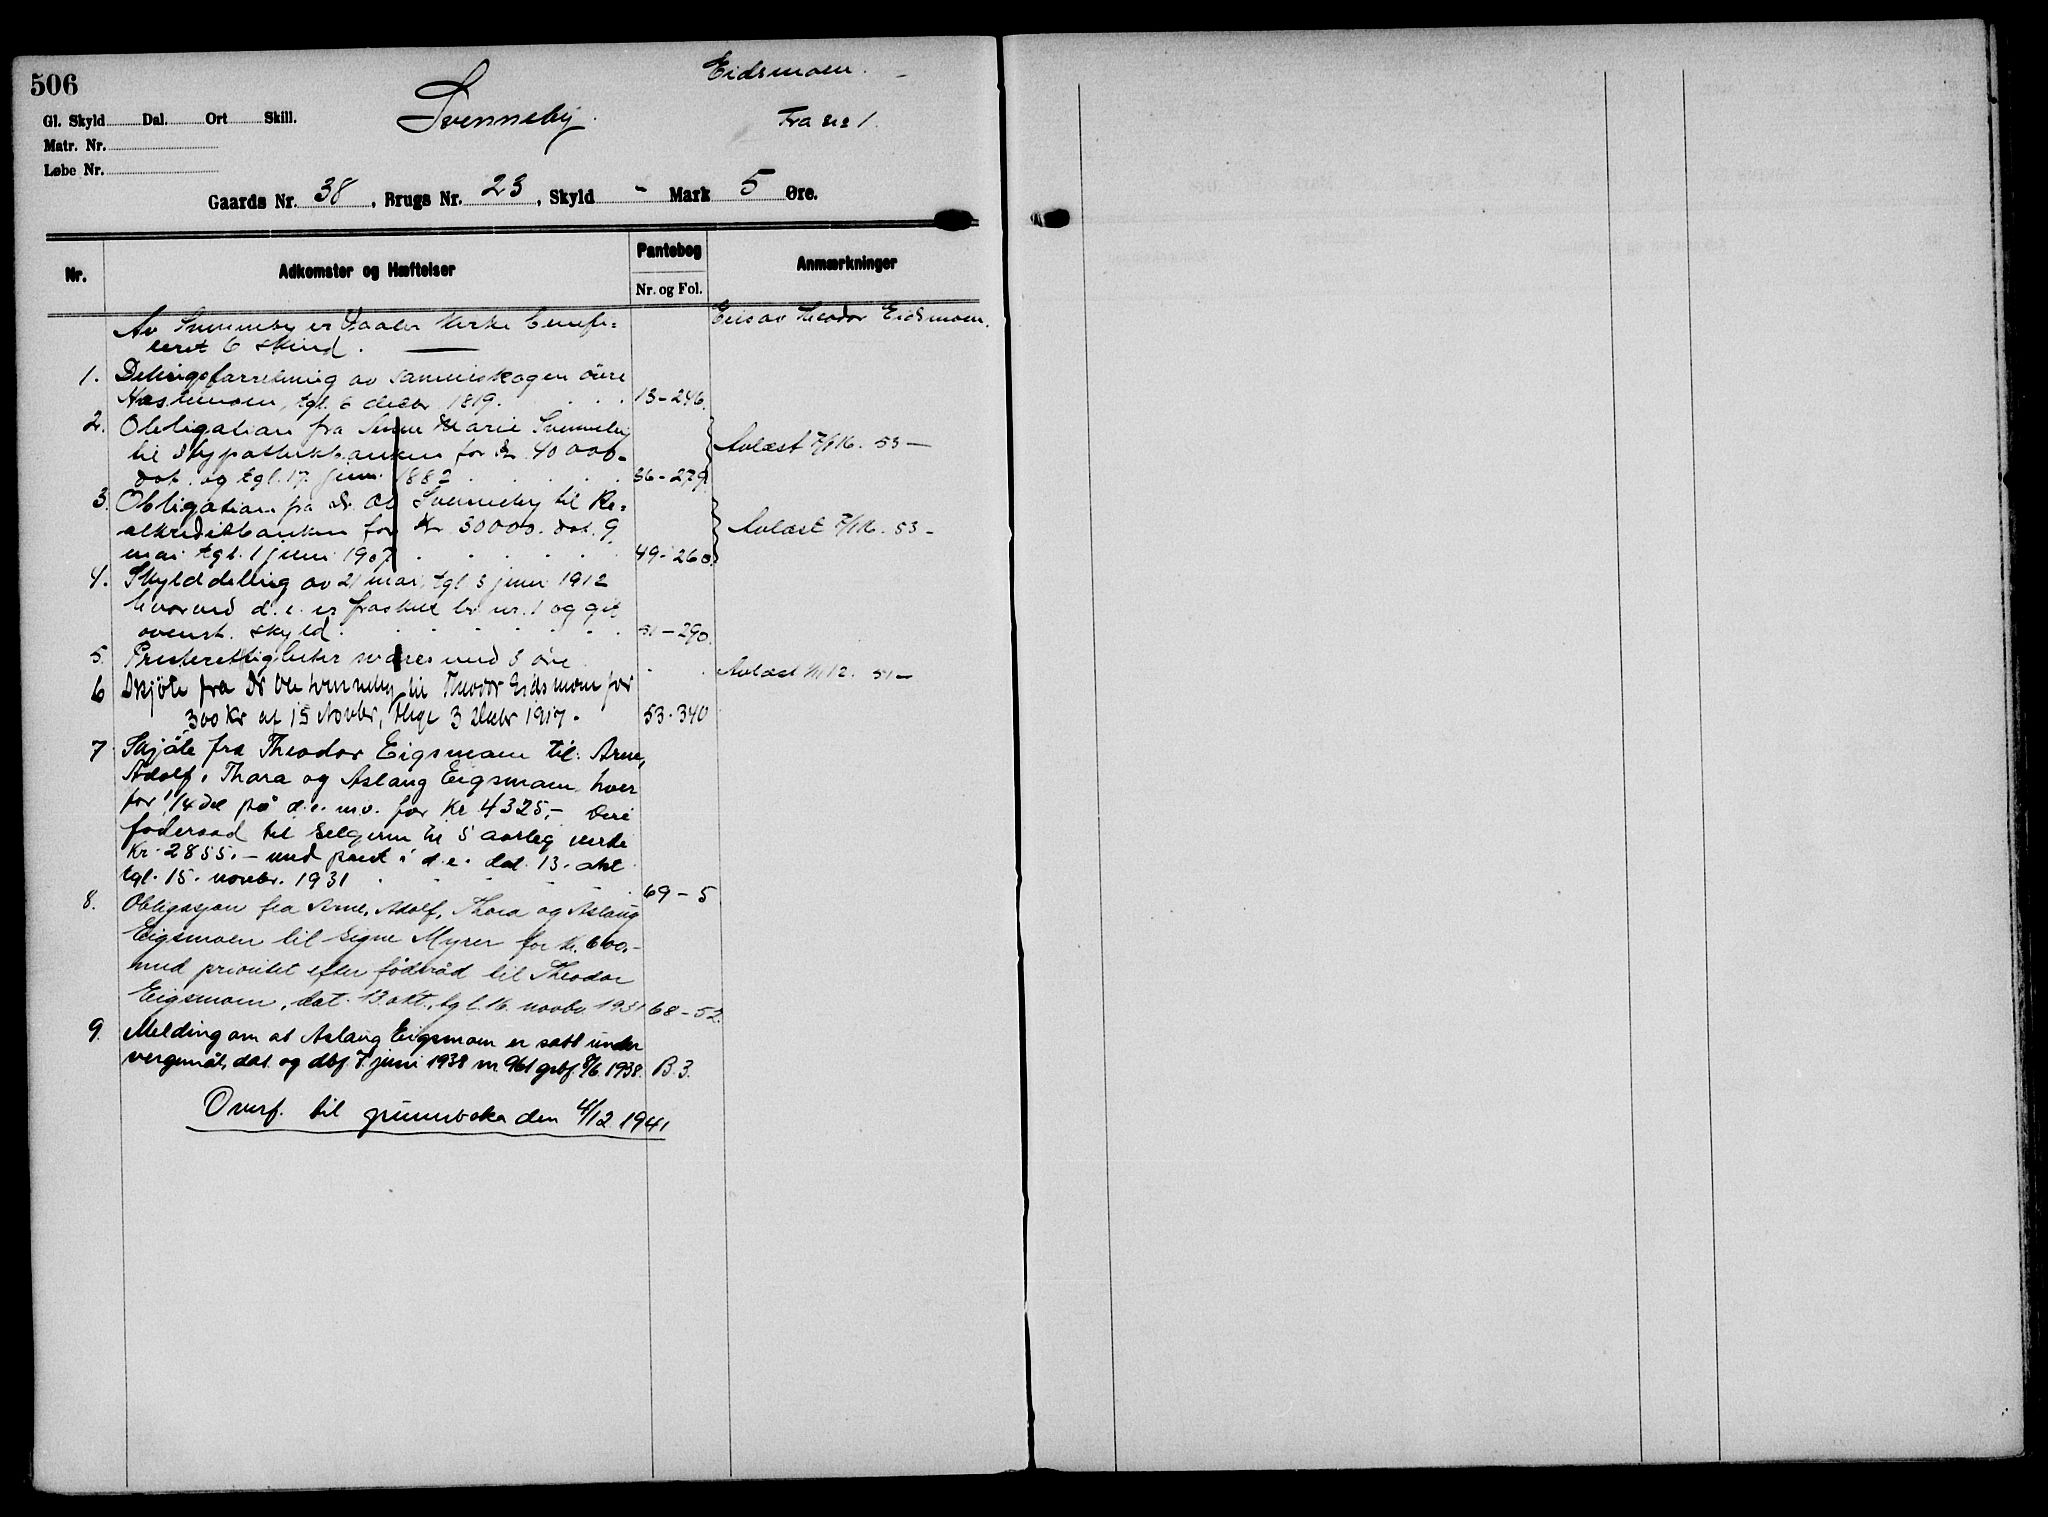 506
Svenneby.
Eidsmoen.
Fra nr 1.
Gl. Skyld Dal. Ort Skill.
Matr. Nr.
Løbe Nr.
Gaards Nr. 38, Brugs Nr. 23, Skyld - Mark 5 Øre.
Nr. Adkomster og Hæftelser Pantebog Nr. og Fol. Anmærkninger
Av Svenneby er Vaaler kirke benefi-
ceret 6 skind.
Eies av Theodor Eidsmoen.
1. Delingsforretning av sameieskogen övre
Hastemoen, tgl. 6 decbr 1819. 13-246.
2. Obligation fra Marie Svenneby
til Hypothekbanken for Kr. 40000-
dat. og tgl. 17 juni 1882 36-279. Avlæst 7/1 16. 53-
3. Obligation fra Dr. Ol Svenneby til Re-
alkreditbanken for Kr 30000. dat. 9
mai tgl. 1 juni 1907 49-260. Avlæst 7/1 16. 53-
4. Skylddeling av 21 mai, tgl. 3 juni 1912
hvorved d. e. er fraskilt br. nr. 1 og git
ovenst. skyld. 51-290.
5. Presterettigheter svares med 3 öre. Avlæst 12. 51-
6 Skjöte fra Dr Ole Svenneby til Theodor Eidsmoen for
300 Kr at 15 Novbr, thgl 3 Decbr 1917. 53-340
7 Skjöte fra Theodor Eigsmoen til: Arne,
Adolf, Thora og Aslaug Eigsmoen, hver
for 1/4 del på d.e. m.v. for Kr 4325,-
föderaad til selgeren til 5 aarleg verdi
Kr. 2855.- med pant i d.e. dat. 13. okt
tgl. 15. novbr. 1931 69-5
8. Obligasjon fra Arne, Adolf, Thora og Aslaug
Eigsmoen til Signe Myrer for kr. 600.-
med prioritet efter föderåd til Theodor
Eigsmoen, dat. 13. okt., tgl. 16. novbr 1931 68-52.
9. Melding om at Aslaug Eigsmoen er satt under
vergemål, dat. og dbf. 7. juni 1938 nr. 961 grbf. 8/6 1938. B. 3.
Overf. til grunnboka den 4/12 1941